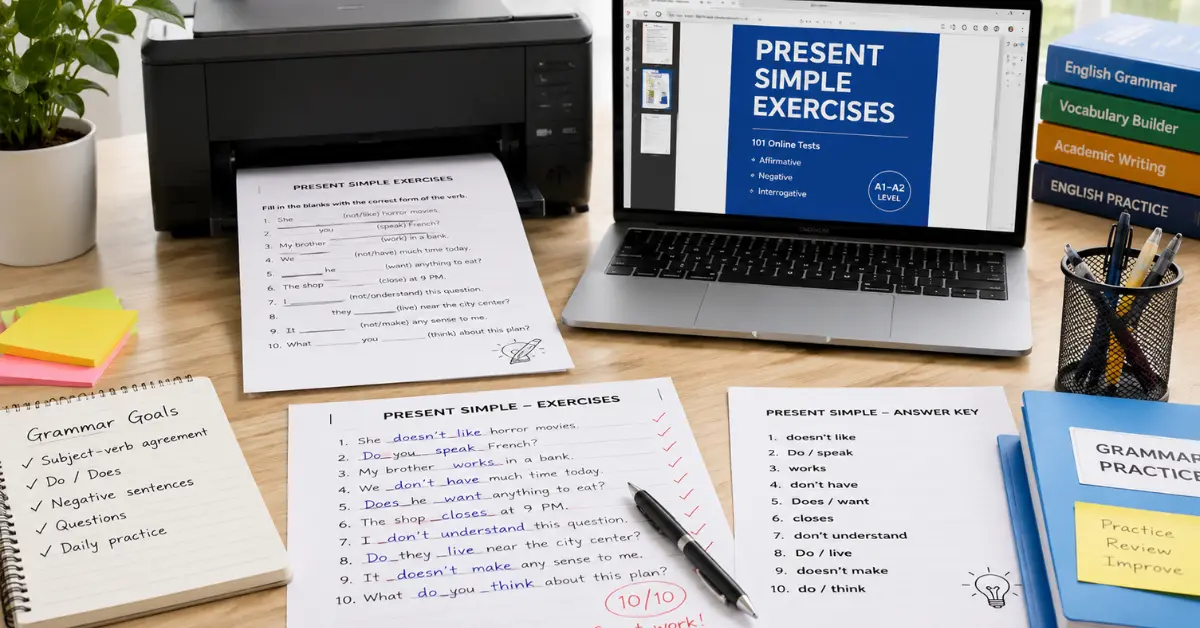 PRESENT SIMPLE EXERCISES
Fill in the blanks with the correct form of the verb.
1. She ________ (not/like) horror movies.
2. ________ you ________ (speak) French?
3. My brother ________ (work) in a bank.
4. We ________ (not/have) much time today.
5. ________ he ________ (want) anything to eat?
6. The shop ________ (close) at 9 PM.
7. I ________ (not/onderstand) this question.
8. ________ they ________ (live) near the city center?
9. It ________ (not/make) any sense to me.
10. What ________ you ________ (think) about this plan?
PRESENT
SIMPLE
EXERCISES
101 Online Tests
Affirmative
Negative
Interrogative
A1–A2
LEVEL
English Grammar
Vocabulary Builder
Academic Writing
ENGLISH PRACTICE
Grammar Goals
✓ Subject-verb agreement
✓ Do / Does
✓ Negative sentences
✓ Questions
✓ Daily practice
PRESENT SIMPLE – EXERCISES
1. She doesn't like horror movies.
2. Do you speak French?
3. My brother works in a bank.
4. We don't have much time today.
5. Does he want anything to eat?
6. The shop closes at 9 PM.
7. I don't understand this question.
8. Do they live near the city center?
9. It doesn't make any sense to me.
10. What do you think about this plan?
10/10
work!
PRESENT SIMPLE – ANSWER KEY
1. doesn't like
2. Do / speak
3. works
4. don't have
5. Does / want
6. closes
7. don't understand
8. Do / live
9. doesn't make
10. do / think
GRAMMAR
PRACTICE
Practice
Review
Improve